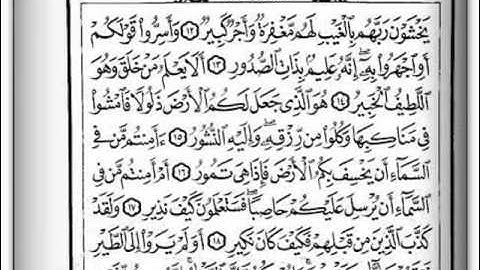 يَخْشَوْنَ رَبَّهُم بِٱلْغَيْبِ لَهُم مَّغْفِرَةٌ وَأَجْرٌ كَبِيرٌ ١٢ وَأَسِرُّوا۟ قَوْلَكُمْ
أَوِ ٱجْهَرُوا۟ بِهِۦٓ ۖ إِنَّهُۥ عَلِيمٌۢ بِذَاتِ ٱلصُّدُورِ ١٣ أَلَا يَعْلَمُ مَنْ خَلَقَ وَهُوَ
ٱللَّطِيفُ ٱلْخَبِيرُ ١٤ هُوَ ٱلَّذِى جَعَلَ لَكُمُ ٱلْأَرْضَ ذَلُولًا فَٱمْشُوا۟
فِى مَنَاكِبِهَا وَكُلُوا۟ مِن رِّزْقِهِۦ ۖ وَإِلَيْهِ ٱلنُّشُورُ ١٥ ءَأَمِنتُم مَّن فِى
ٱلسَّمَآءِ أَن يَخْسِفَ بِكُمُ ٱلْأَرْضَ فَإِذَا هِىَ تَمُورُ ١٦ أَمْ أَمِنتُم مَّن فِى
ٱلسَّمَآءِ أَن يُرْسِلَ عَلَيْكُمْ حَاصِبًا ۖ فَسَتَعْلَمُونَ كَيْفَ نَذِيرِ ١٧ وَلَقَدْ
كَذَّبَ ٱلَّذِينَ مِن قَبْلِهِمْ فَكَيْفَ كَانَ نَكِيرِ ١٨ أَوَلَمْ يَرَوْا۟ إِلَى ٱلطَّيْرِ